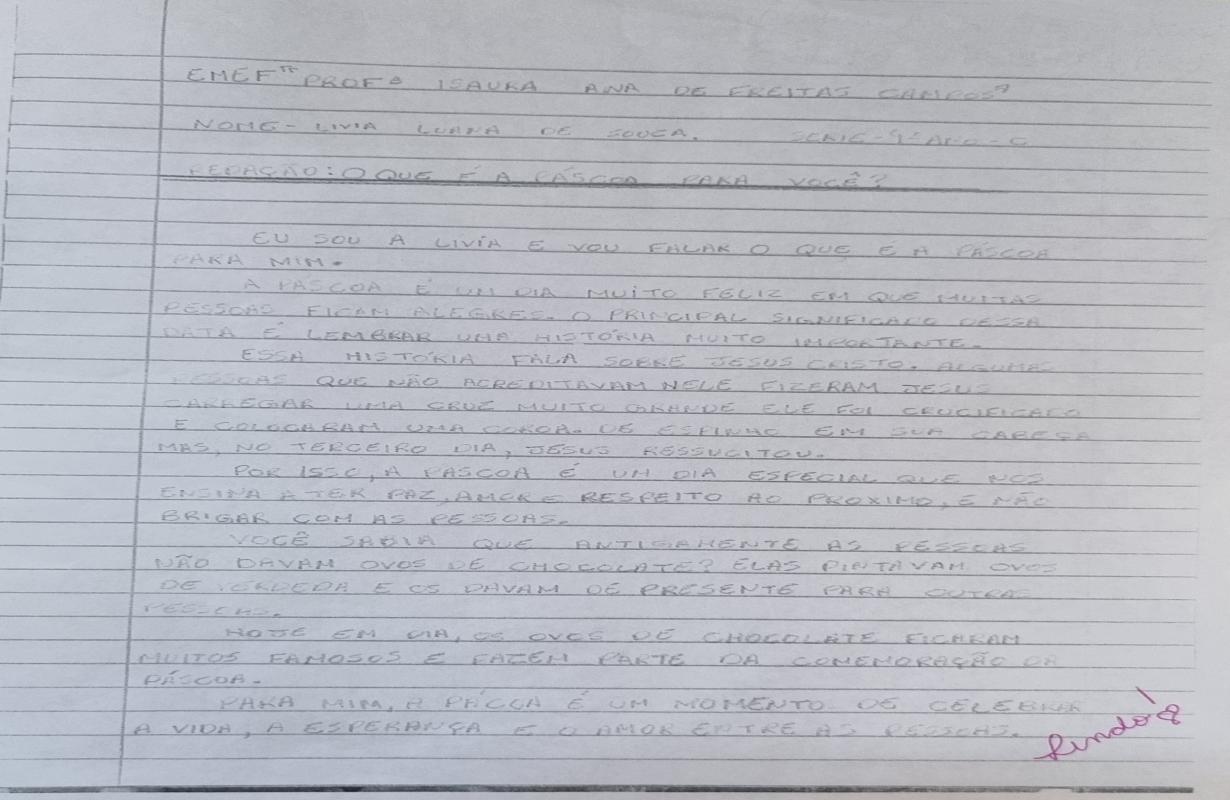 EMEF" PROFª ISAURA ANA DE FREITAS CAMPOS"
NOME - LIVIA LUANA DE SOUZA. SERIE - 4º ANO - C
REDAÇÃO: O QUE É A PÁSCOA PARA VOCÊ?
EU SOU A LIVIA E VOU FALAR O QUE É A PÁSCOA
PARA MIM.
A PÁSCOA É UM DIA MUITO FELIZ EM QUE MUITAS
PESSOAS FICAM ALEGRES. O PRINCIPAL SIGNIFICADO DESSA
DATA É LEMBRAR UMA HISTÓRIA MUITO IMPORTANTE.
ESSA HISTÓRIA FALA SOBRE JESUS CRISTO. ALGUMAS
PESSOAS QUE NÃO ACREDITAVAM NELE FIZERAM JESUS
CARREGAR UMA CRUZ MUITO GRANDE ELE FOI CRUCIFICADO
E COLOCARAM UMA COROA. DE ESPINHO EM SUA CABEÇA
MAS, NO TERCEIRO DIA, JESUS RESSUCITOU.
POR ISSO, A PASCOA É UM DIA ESPECIAL QUE NOS
ENSINA A TER PAZ, AMOR E RESPEITO AO PROXIMO, E NÃO
BRIGAR COM AS PESSOAS.
VOCÊ SABIA QUE ANTIGAMENTE AS PESSOAS
NÃO DAVAM OVOS DE CHOCOLATE? ELAS PINTAVAM OVOS
DE E OS DAVAM DE PRESENTE PARA OUTRAS
PESSOAS.
HOJE EM DIA, OS OVOS DE CHOCOLATE FICARAM
MUITOS FAMOSOS E FAZEM PARTE DA COMEMORAÇÃO DA
PÁSCOA.
PARA MIM, A PÁSCOA É UM MOMENTO DE CELEBRAR
A VIDA, A ESPERANÇA E O AMOR ENTRE AS PESSOAS.